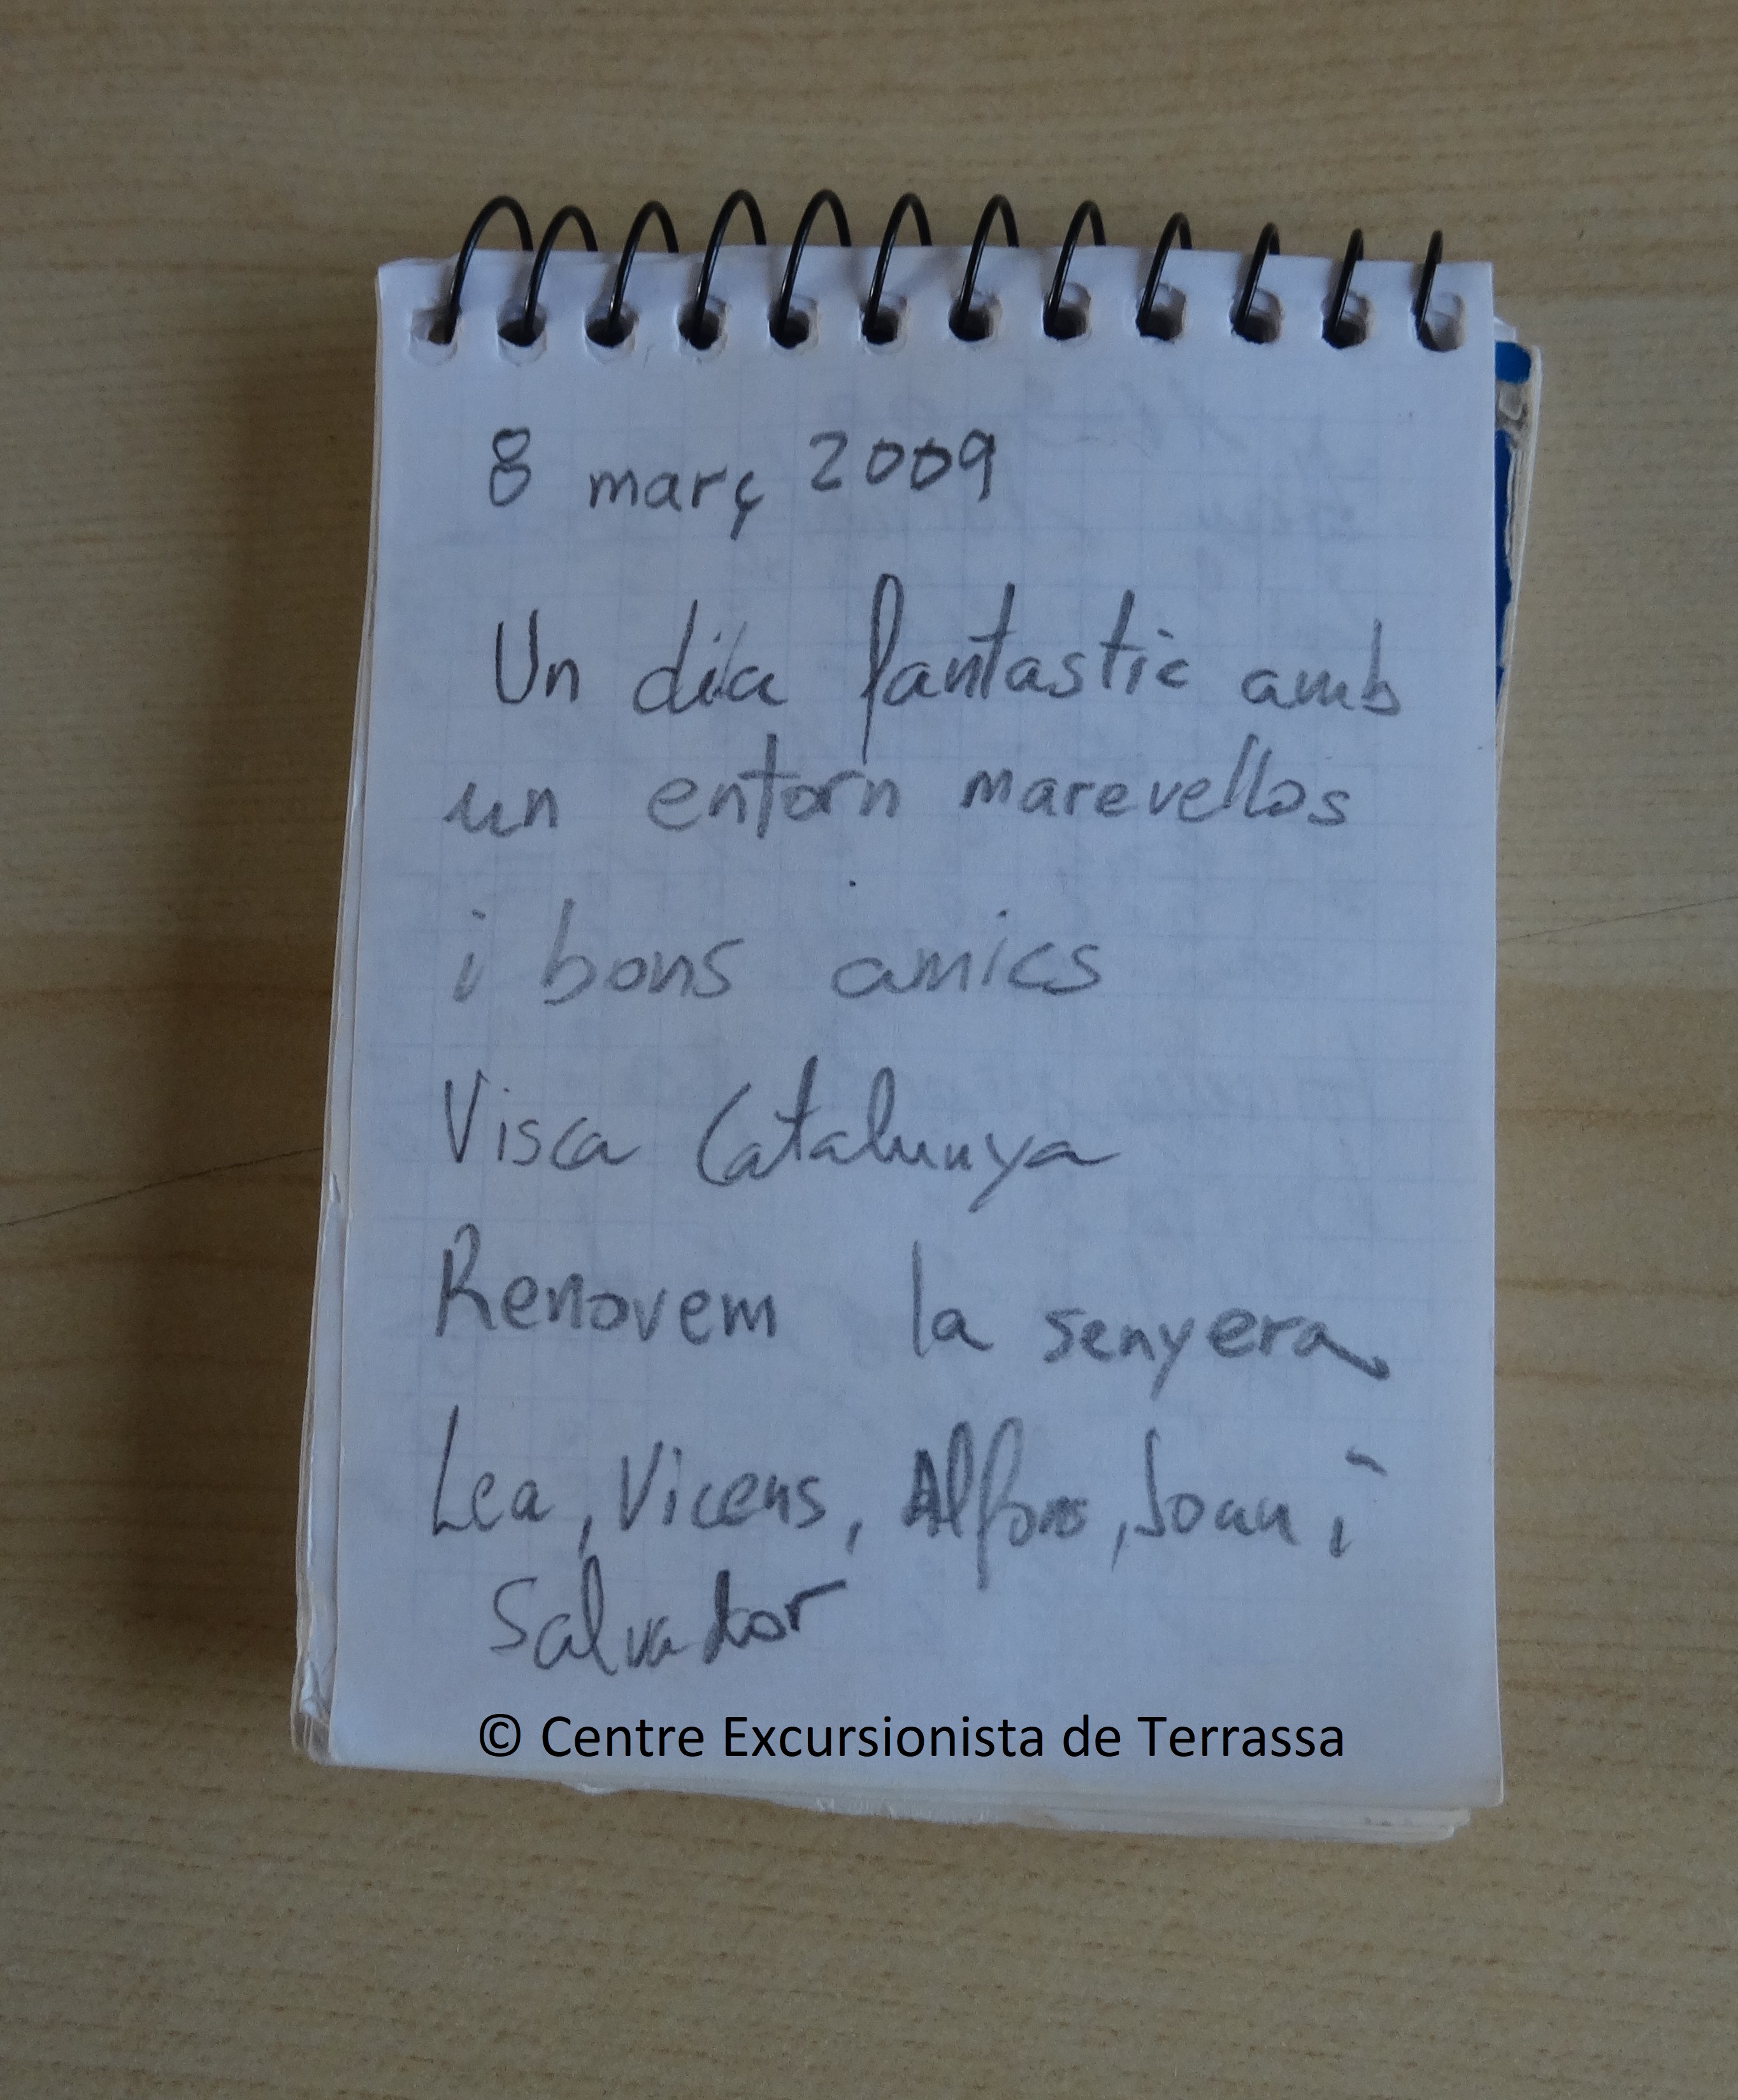 8 març 2009
Un dia fantastic amb
un entorn marevellos
i bons amics
Visca Catalunya
Renovem la senyera
Lea, Vicens, Alfons, Joan i
Salvador
© Centre Excursionista de Terrassa